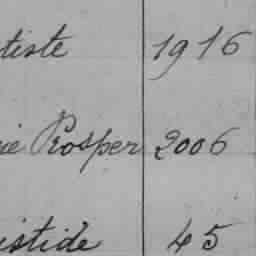 tiste 1916
ie Prosper 2006
istide 45